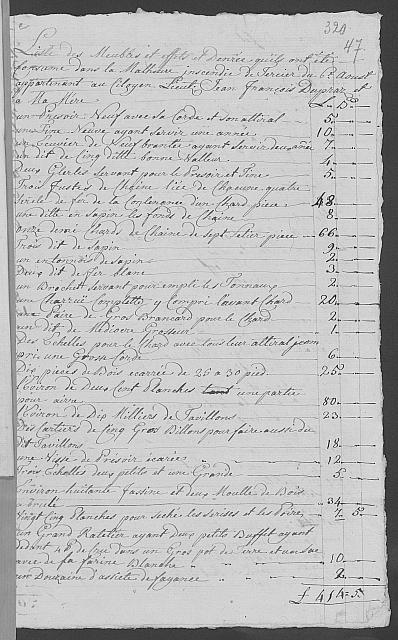 320
47
Liste des Meubles et effets et Denrée qu'ils ont été
Consumé dans la Malheure inscendie de Percier du 6e Aoust
appartenant au Citoyen Lieut. Jean François Dupraz et
a Ma Mere £ s
un Presoir Neuf avec sa Corde et son attiral 5
une Tine Neuve ayant servir une année 10
un Cuvier de Neuf brantée ayant servir deux année 7
un dit de Cinq ditte bonne Valleur 4
Deux Gerles servant pour le Presoir et Tine 5
Trois Fustes de Chaine liée de Chacune quatre
Sercle de fer de la Contenance d'un Chard piece 48
une ditte en sapin les fonds de Chaine 8
onze demi Chards de Chaine de sept setier piece 66
Trois dit de Sapin 9
un entonnois de sapin 2
Deux dit de fer blanc 3
un Brochet servant pour emplir les Tonnaux 2
une Charruë Complette y Compri l'avant Chard 20
une Paire de Gros Brancard pour le Chard 2
un dit de Mediocre Grosseur 1
Des Echelles pour le Chard avec tous leur attiral
pris une Grosse Corde 6
Dix pieces de Bois ecarriée de 25 a 30 pied 25
Environ de Deux Cent Planches une partie
pour airer 80
Environ de Dix Milliers de Tavillons 23
Des Cartiers de Cinq Gros Billons pour faire aussi du
dit Tavillons 18
une Visse de Presoir écarrée 12
Trois Echelles deux petits et une Grande 5
Environ huitante Fassine et deux Moulle de Bois
a brule 34
Vingt Cinq Planches pour seché les serises et les Poire 7 5
un Grand Ratelier ayant deux petits Buffet ayant
dedant dans un Gros pot de Terre et un Sac
avec de la farine Blanche 10
une Douzaine d'assiete de fayance 2
£ 414 5s